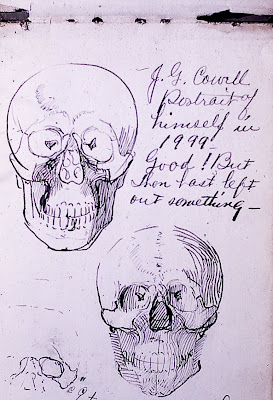 J. G. Cowell
Portrait of
himself in
1999.
Good! But
thou hast left
out something –